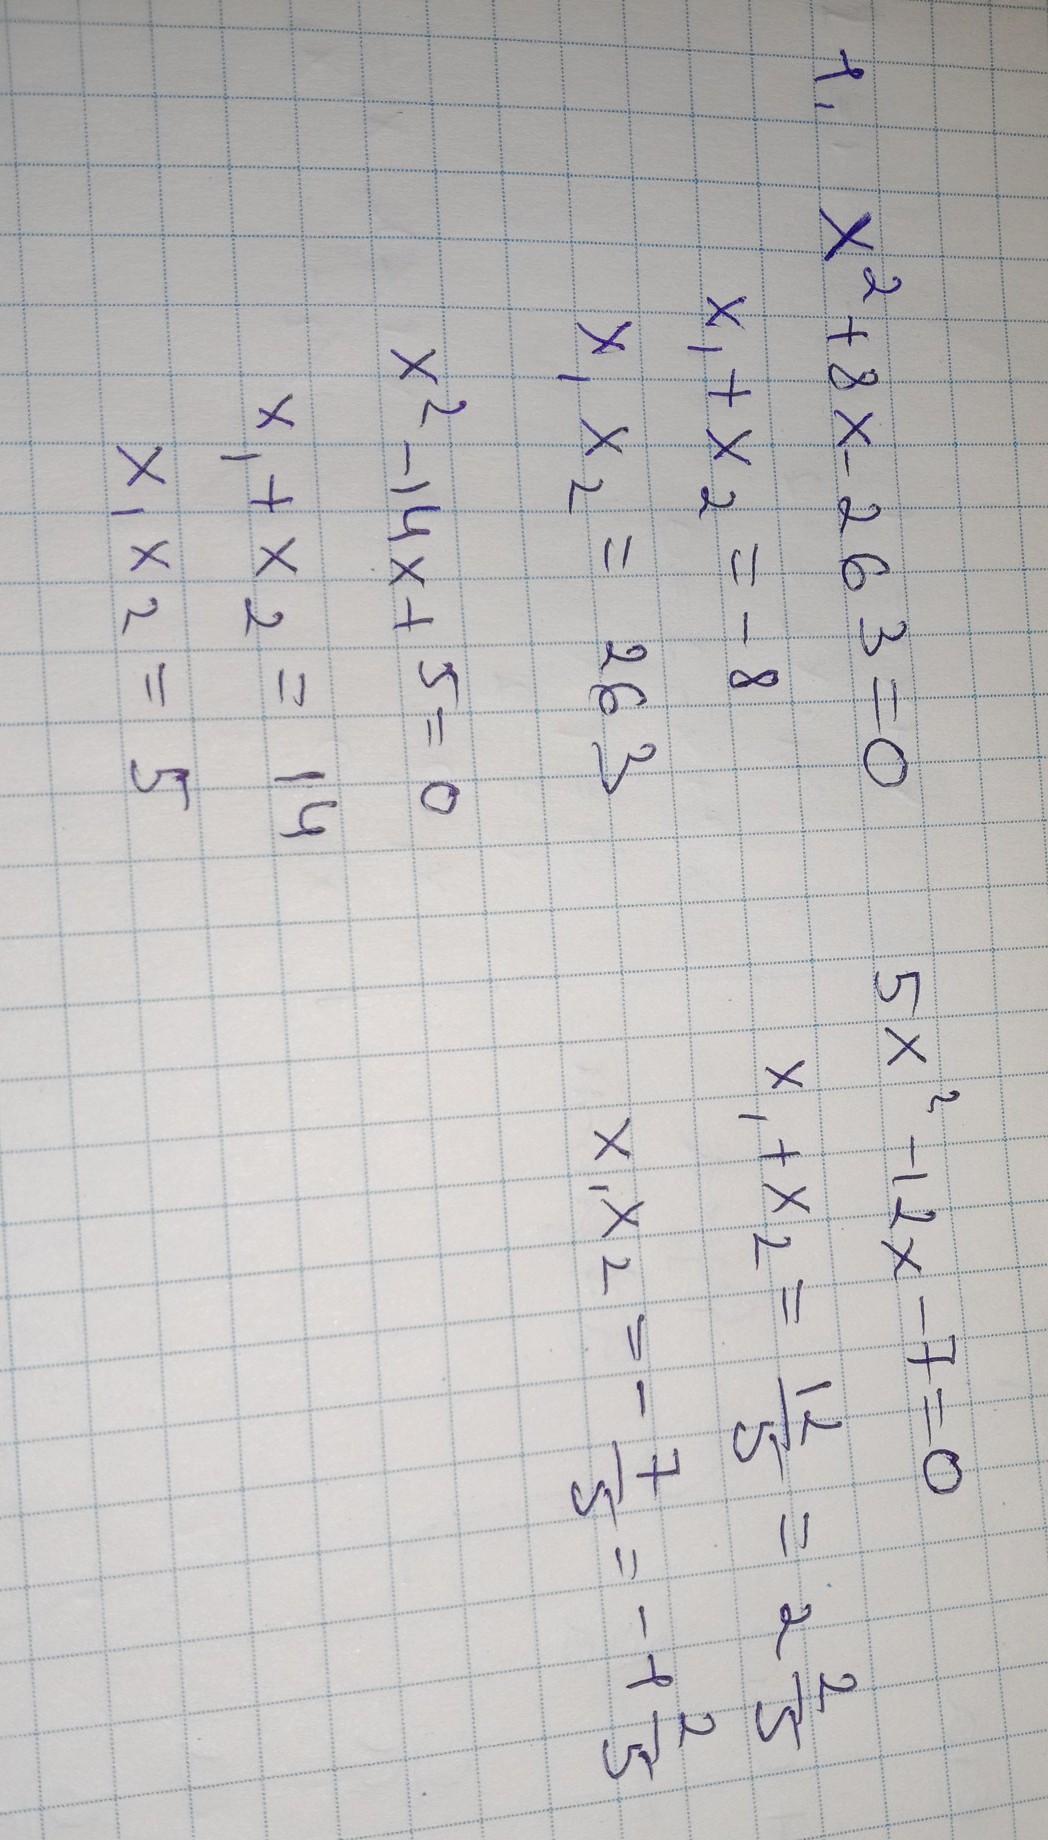 1. x² + 8x - 263 = 0
x₁ + x₂ = - 8
x₁ x₂ = 263
x² - 14x + 5 = 0
x₁ + x₂ = 14
x₁ x₂ = 5
5x² - 12x - 7 = 0
x₁ + x₂ = 12/5 = 2 2/5
x₁ x₂ = - 7/5 = - 1 2/5